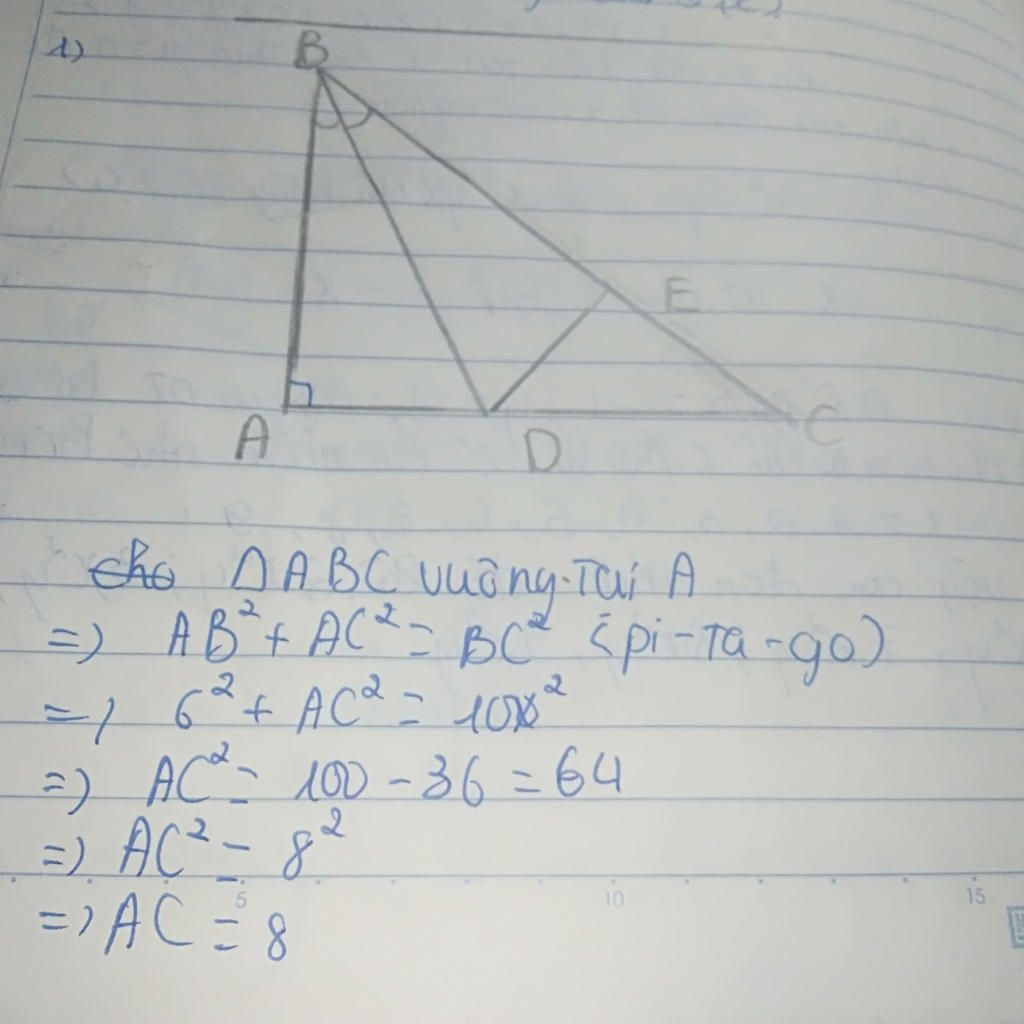 1)
B
E
A
D
C
cho Δ ABC vuông tại A
=) AB² + AC² = BC² (pi-ta-go)
=) 6² + AC² = 10²
=) AC² = 100 - 36 = 64
=) AC² = 8²
=) AC = 8
5 10 15